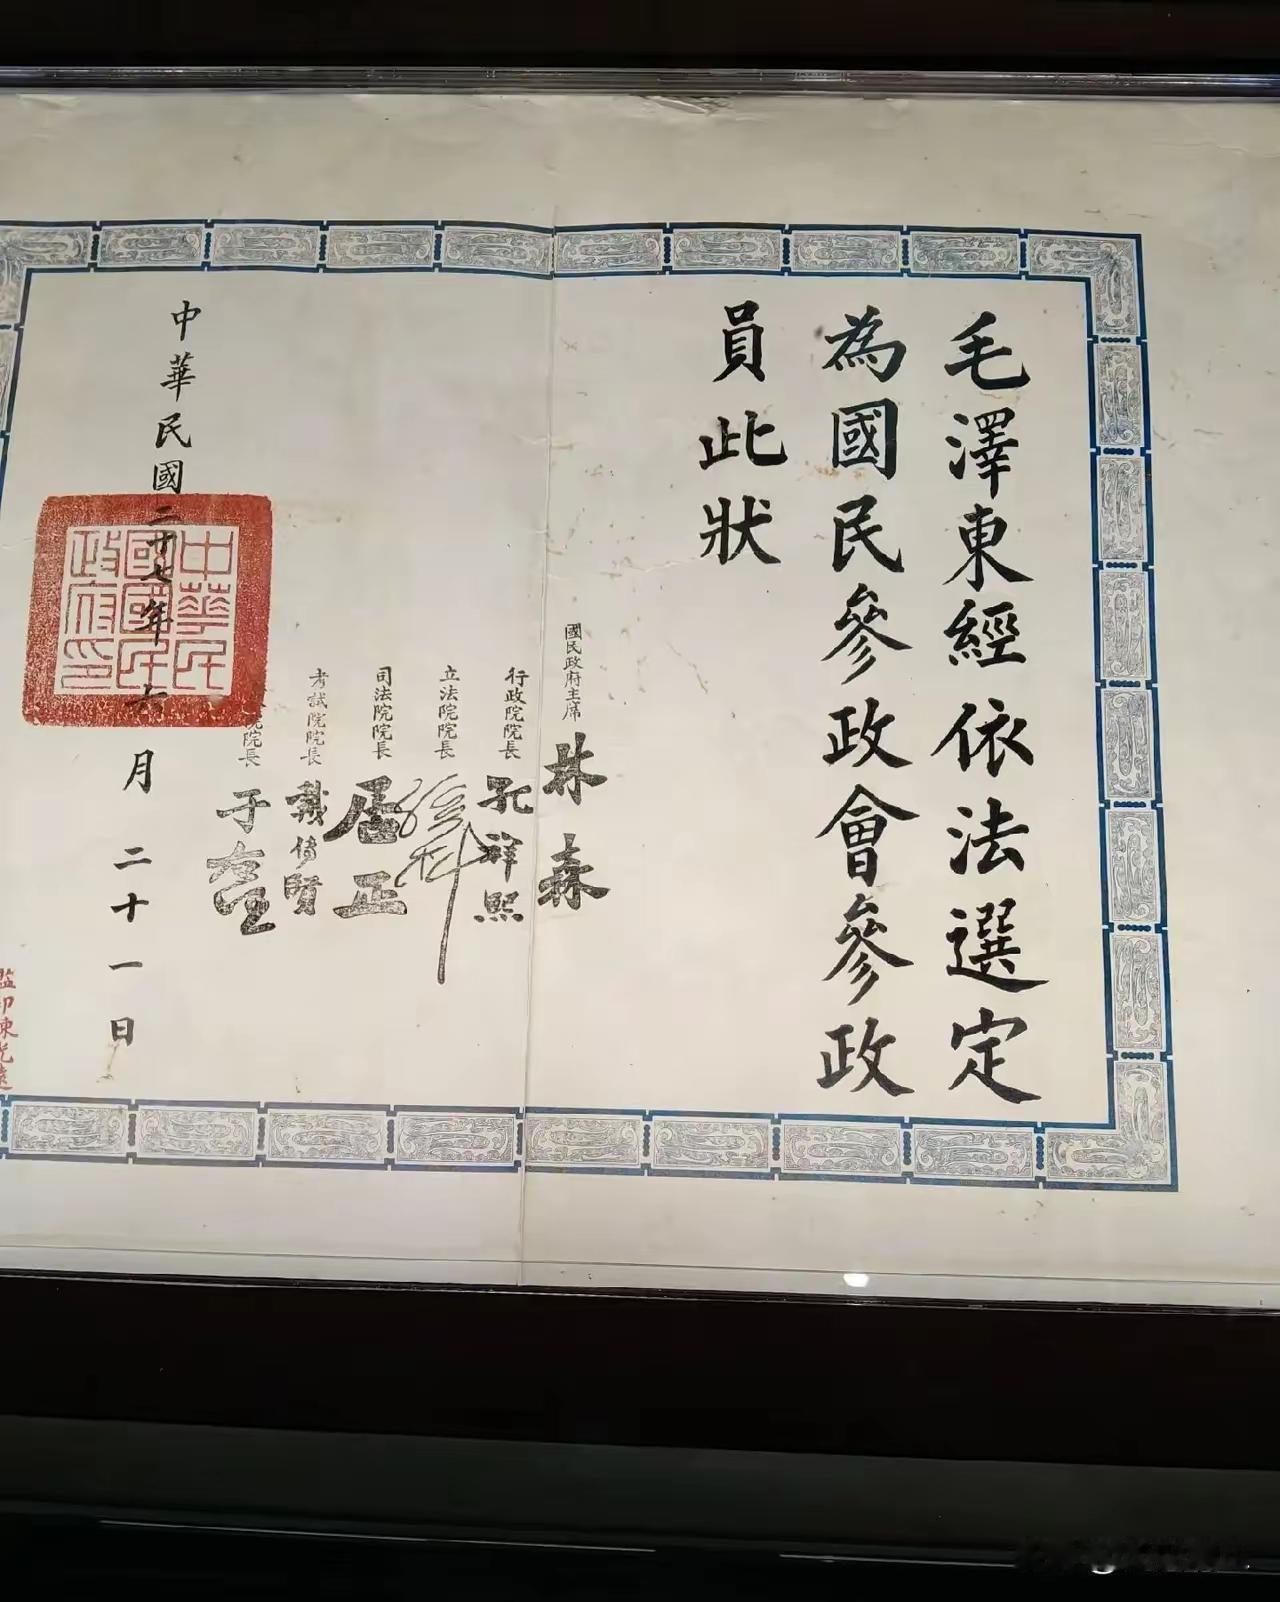 毛澤東經依法選定
為國民參政會參政
員此狀
國民政府主席 林森
行政院院長 孔祥熙
立法院院長 孫科
司法院院長 居正
考試院院長 戴傳賢
院院長 于右任
中華民國二十七年六月二十一日
中華民國國民政府印
監印陳光遠